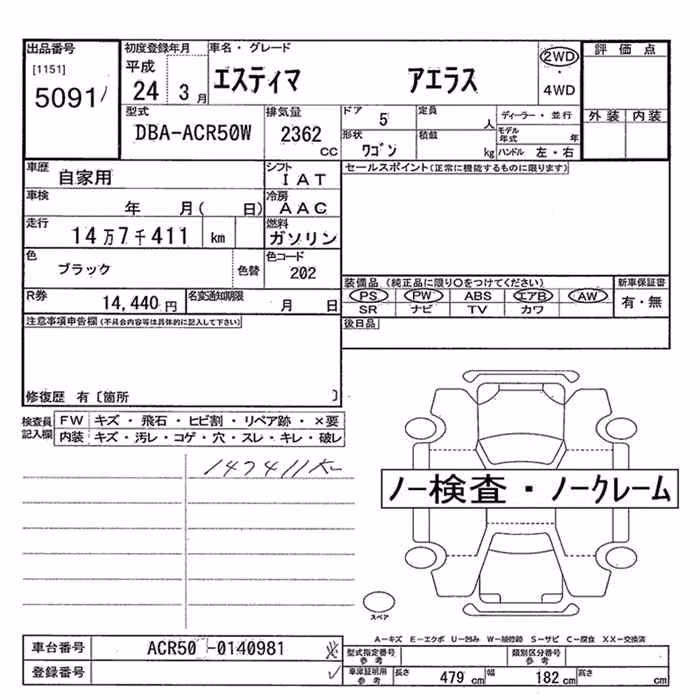 出品番号 初度登録年月 車名・グレード 2WD 評価点
[1151] 平成 エスティマ アエラス ・
5091 24 3月 4WD
型式 排気量 ドア 5 定員 人 ディーラー・並行 外装 内装
DBA-ACR50W 2362 cc 形状 ワゴン 積載 kg モデル年式 年
ハンドル 左・右
車歴 自家用 シフト IAT セールスポイント(正常に機能するものに限ります)
車検 年 月( 日) 冷房 AAC
走行 14万7千411 km 燃料 ガソリン
色 ブラック 色替 色コード 202 装備品(純正品に限り○をつけてください) 新車保証書
R券 14,440円 名変通知期限 月 日 PS PW ABS エアB AW 有・無
SR ナビ TV カワ
注意事項申告欄(不具合内容等は具体的に記入して下さい) 後日品
修復歴 有〔箇所 〕
検査員記入欄 FW キズ・飛石・ヒビ割・リペア跡・×要
内装 キズ・汚レ・コゲ・穴・スレ・キレ・破レ
147411
ノー検査・ノークレーム
スペア
A-キズ E-エクボ U-凹み W-補修跡 S-サビ C-腐食 XX-交換済
車台番号 ACR50 -0140981 型式指定番号参考 類別区分番号参考
登録番号 車庫証明用参考 長さ 479 cm 幅 182 cm 高さ cm